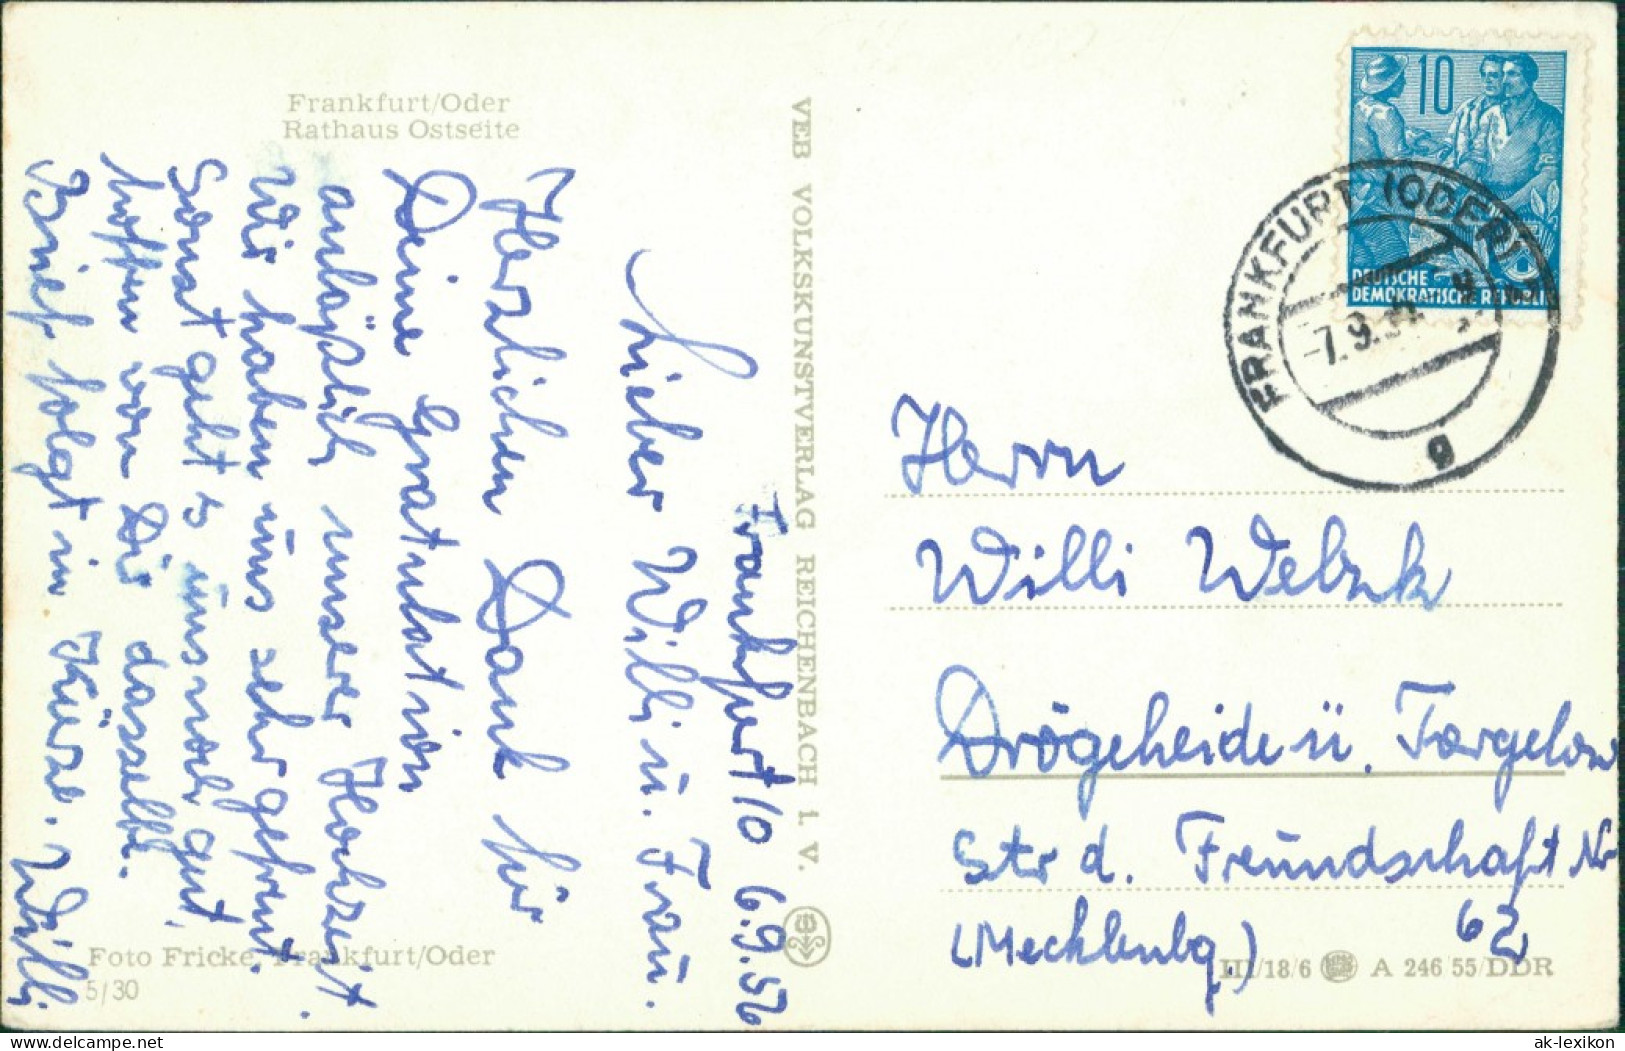 Frankfurt/Oder
Rathaus Ostseite
Frankfurt/O 6.9.56
Lieber Willi u. Frau.
Herzlichen Dank für
Deine Gratulation
anläßlich unserer Hochzeit
Wir haben uns sehr gefreut.
Sonst geht's uns noch gut,
hoffen von Dir dasselbe.
Brief folgt in Kürze. Willi
Foto Fricke, Frankfurt/Oder
5/30
VEB VOLKSKUNSTVERLAG REICHENBACH i. V.
10
DEUTSCHE
DEMOKRATISCHE REPUBLIK
FRANKFURT (ODER) 1
-7.9.
g
Herrn
Willi
Drögeheide ü. Torgelow
Str d. Freundschaft Nr
62
(Mecklenbg.)
III/18/6 A 246/55/DDR
ak-lexikon